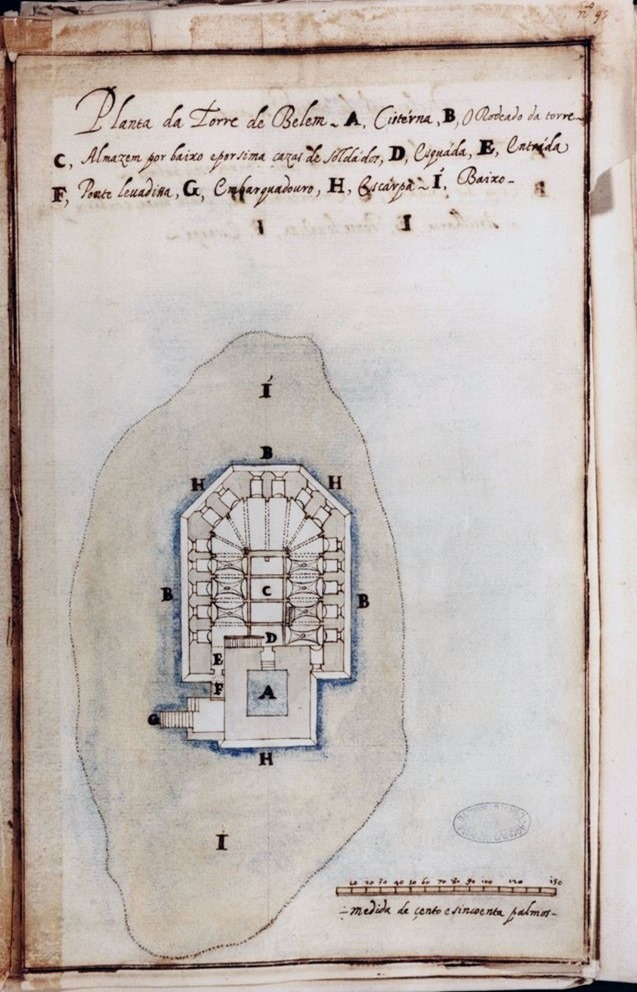 nº 95
Planta da Torre de Belem ~ A, Cisterna, B, O Rodeado da torre
C, Almazem por baixo e por sima cazas de soldádos, D, Esguáda, E, Entráda
F, Ponte levadissa, G, Embarquadouro, H, Escarpa ~ Í, Baixo -
I I
Í
B
H H
B C B
D
E
F A
G
H
I
70 80 90 100 120 150
- medida de çento e sincoenta palmos -